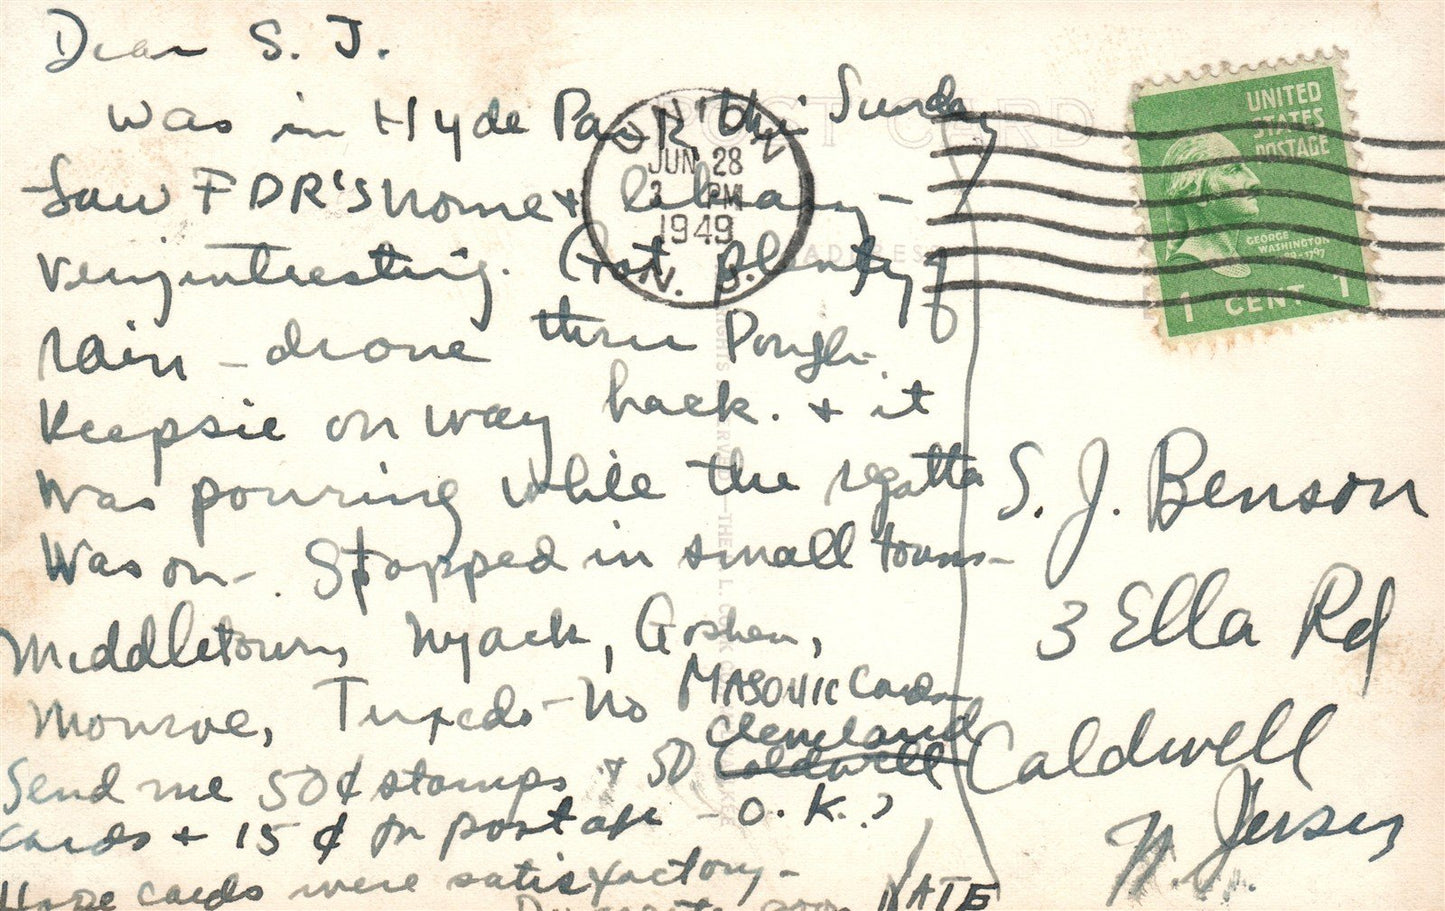 Dear S. J.
Was in Hyde Park this Sunday
Saw FDR'S home & library -
very interesting. Got plenty of
rain - drove thru Pough-
Keepsie on way back. & it
was pouring while the regatta
was on - Stopped in small towns -
Middletown, Nyack, Goshen,
Monroe, Tuxedo - No MASONIC cards
Send me 50¢ stamps & 50 Cleveland
Caldwell
cards + 15¢ in postage - O.K.?
Hope cards were satisfactory -
NATE
POST CARD
ADDRESS
JUN 28
3 PM
1949
N. J.
UNITED
STATES
POSTAGE
GEORGE
WASHINGTON
1 CENT 1
S. J. Benson
3 Ella Rd
Caldwell
N. Jersey
N.J.